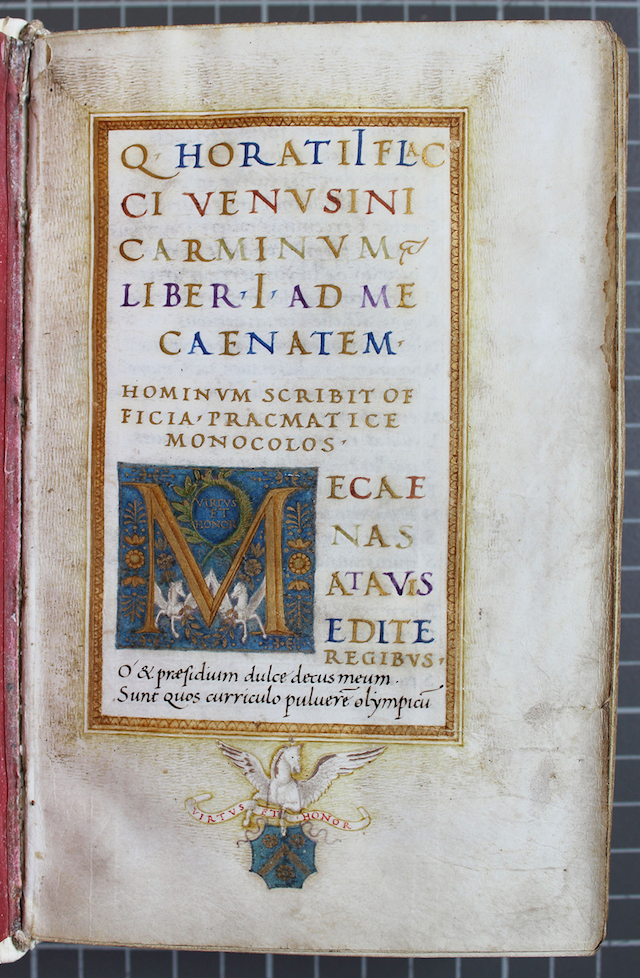 Q· HORATII FLAC
CI VENVSINI
CARMINVM
LIBER·I·AD ME
CAENATEM·
HOMINVM SCRIBIT OF
FICIA·PRACMATICE
MONOCOLOS·
VIRTVS
ET
HONOR
M ECAE
NAS
ATAVIS
EDITE
REGIBVS·
O & præsidium dulce decus meum.
Sunt quos curriculo puluerē olỳmpicū
VIRTVS ET HONOR